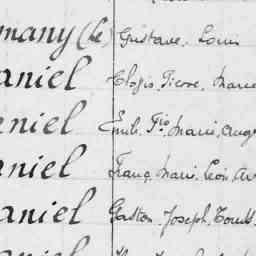 many (le) Gustave, Louis
aniel Clovis, Pierre, Marie
aniel Emile, Frs, Marie, Aug
aniel Franç, Marie, Léon, Av
aniel Gaston, Joseph,
aniel